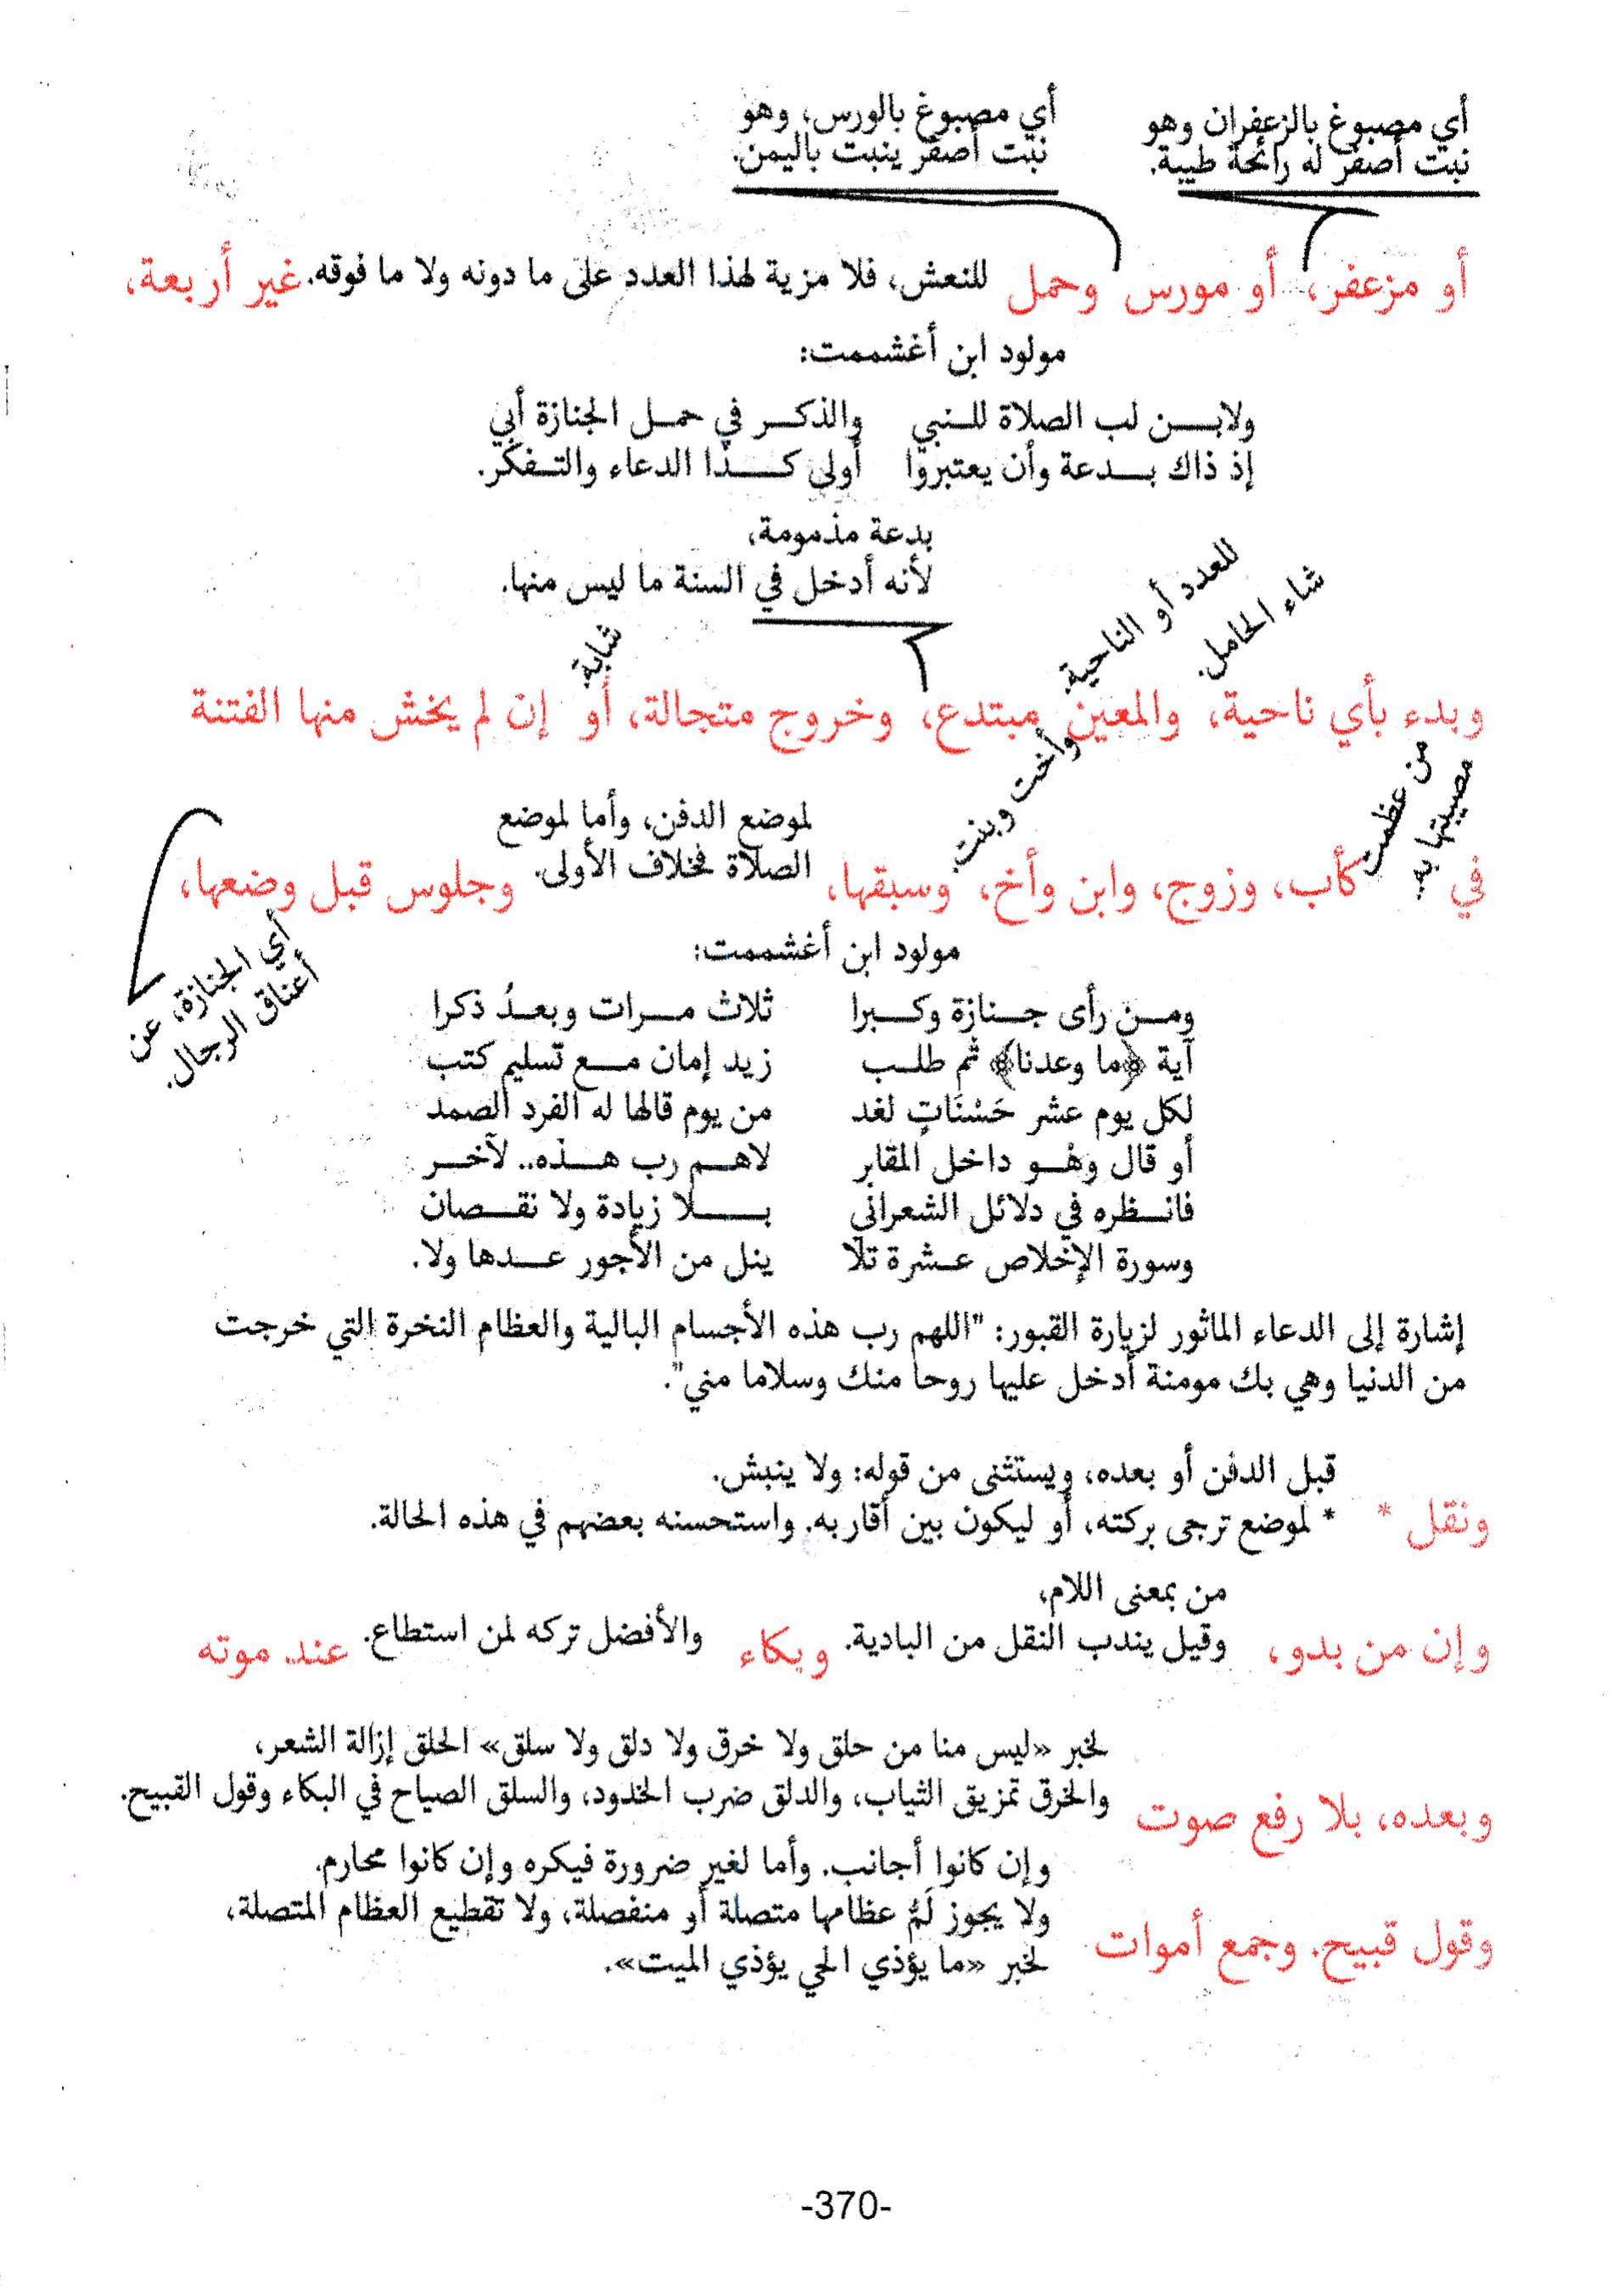 أي مصبوغ بالزعفران وهو
نبت أصفر له رائحة طيبة.
أي مصبوغ بالورس، وهو
نبت أصفر ينبت باليمن.
أو مزعفر، أو مورس وحمل للنعش، فلا مزية لهذا العدد على ما دونه ولا ما فوقه. غير أربعة،
مولود ابن أغشممت:
ولابـــن لب الصلاة للـنبي والذكـــر في حمـــل الجنازة أبي
إذ ذاك بـــدعة وأن يعتبروا أولى كـــذا الدعاء والتـفكر.
بدعة مذمومة،
لأنه أدخل في السنة ما ليس منها.
للعدد أو الناحية.
شاء الحامل.
شابة.
وبدء بأي ناحية، والمعين مبتدع، وخروج متجالة، أو إن لم يخش منها الفتنة
من عظمت
مصيبتها به.
وأخت وبنت.
لموضع الدفن، وأما لموضع
الصلاة فخلاف الأولى.
في كأب، وزوج، وابن وأخ، وسبقها، وجلوس قبل وضعها،
أي الجنازة، عن
أعناق الرجال.
مولود ابن أغشممت:
ومـــن رأى جـــنازة وكـــبرا ثلاث مـــرات وبعـدُ ذكرا
آية ﴿ما وعدنا﴾ ثم طلـب زيد إمان مـــع تسليم كتب
لكل يوم عشر حَسْنَاتٍ لغد من يوم قالها له الفرد الصمد
أو قال وهْـــو داخل المقابر لاهـــم رب هـــذه.. لآخـــر
فانـــظره في دلائل الشعراني بـــــلا زيادة ولا نقـــصان
وسورة الإخلاص عـــشرة تلا ينل من الأجور عـــدها ولا.
إشارة إلى الدعاء الماثور لزيارة القبور: "اللهم رب هذه الأجسام البالية والعظام النخرة التي خرجت
من الدنيا وهي بك مومنة أدخل عليها روحا منك وسلاما مني".
قبل الدفن أو بعده، ويستثنى من قوله: ولا ينبش.
ونقل * * لموضع ترجى بركته، أو ليكون بين أقاربه. واستحسنه بعضهم في هذه الحالة.
من بمعنى اللام،
وإن من بدو، وقيل يندب النقل من البادية. وبكاء والأفضل تركه لمن استطاع. عند موته
لخبر «ليس منا من حلق ولا خرق ولا دلق ولا سلق» الحلق إزالة الشعر،
والخرق تمزيق الثياب، والدلق ضرب الخدود، والسلق الصياح في البكاء وقول القبيح.
وبعده، بلا رفع صوت
وإن كانوا أجانب. وأما لغير ضرورة فيكره وإن كانوا محارم.
ولا يجوز لَمُّ عظامها متصلة أو منفصلة، ولا تقطيع العظام المتصلة،
وقول قبيح. وجمع أموات لخبر «ما يؤذي الحي يؤذي الميت».
-370-